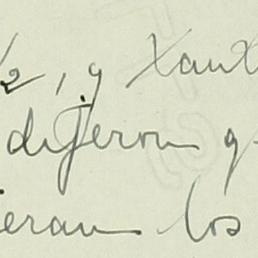 1/2, y Xaux
dijeron q
ieran los